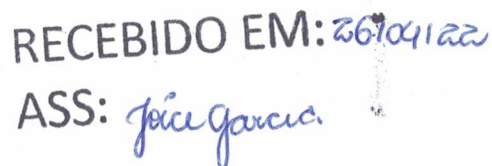 RECEBIDO EM: 26/04/22
ASS: Joice Garcia.